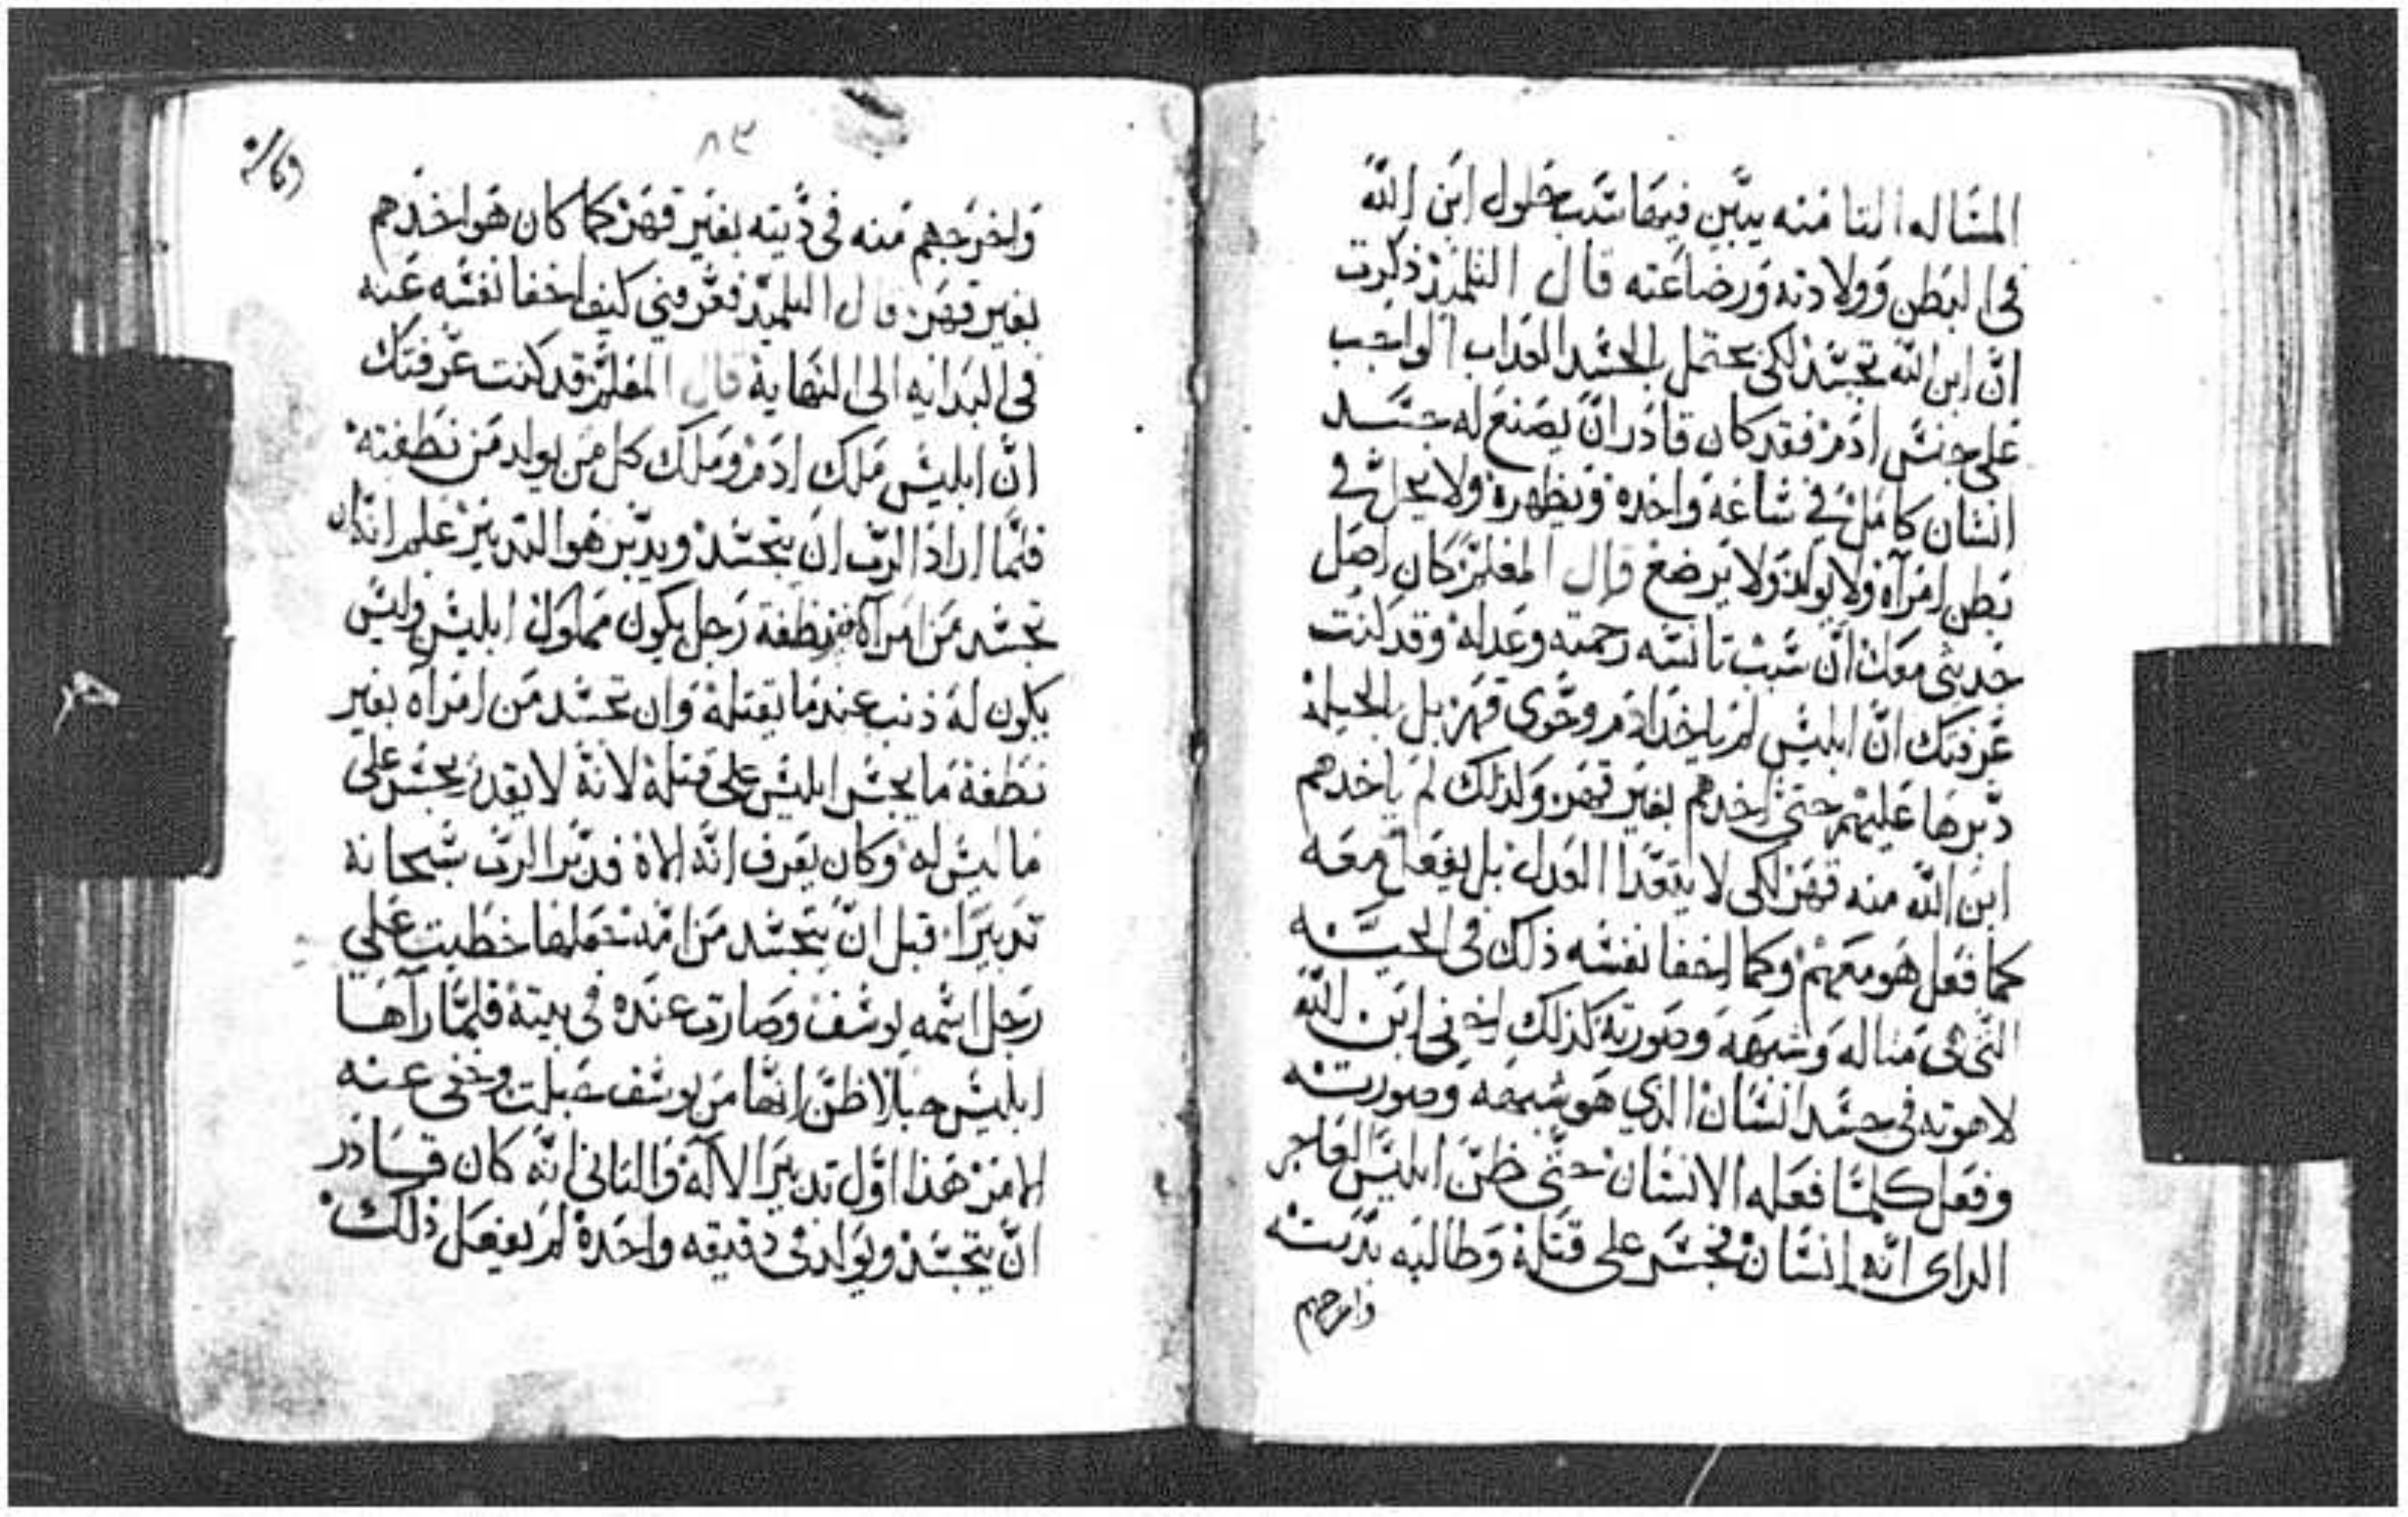 المساله التامنه يبين فيها سبب حلول ابن الله
فى البطن وولادته ورضاعته قال التلميذ ذكرت
انّ ابن الله تجسّد لكى يحتمل بالجسد العداب الواجب
على جنس ادم فقد كان قادر انّ يصنع له جسد
انسان كامل فى ساعه واحده ويظهره ولا يحل فى
بطن امرآه ولا يولد ولا يرضع قال المعلم كان اصل
حديثى معك انّ سبب تانسه رحمته وعدله وقد كنت
عرفتك انّ ابليس لم ياخد ادم وحوى قهر بل بالحيله
دبرها عليهم حتى اخدهم بغير قهر ولدلك لم ياخدهم
ابن الله منه قهر لكى لا يتعدا العدل بل يفعل معه
كما فعل هو معهم وكما اخفا نفسه ذلك فى الحيه
التى مثاله وشبهه وصورته كذلك اخفى ابن الله
لاهوته فى جسد انسان الدي هو شبهه وصورته
وفعل كلما فعله الانسان حتى ظن ابليس الفاجر
الراى انه انسان فجسر على قتله وطالبه بديته
واخرجهم
٨٣
واخرجهم منه فى ديته بغير قهر كما كان هو اخدهم
بغير قهر قال التلميد فعرفني كيف اخفا نفسه عنه
فى البدايه الى النهاية قال المعلم قد كنت عرفتك
انّ ابليس ملك ادم وملك كل من يولد من نطفته
فلما اراد الرب ان يتجسد ويدبر هو التدبير علم ان كان
تجسد من امرآه من نطفة رجل يكون مملوك ابليس وليس
يكون له ذنب عندما يقتله وان تجسد من امرآه بغير
نطفة ما يجسر ابليس على قتله لانه لا يقدر يجسر على
ما ليس له وكان يعرف انه الاه فدبر الرب سبحانه
تدبيرا قبل ان يتجسد من امه جعلها خطبت على
رجل اسمه يوسف وصارت عنده فى بيته فلما رآها
ابليس حبلا ظن انها من يوسف حبلت وخفى عنه
الامر هذا اول تدبير الاله والتانى انه كان قادر
ان يتجسد ويولد فى دقيقه واحده لم يفعل ذلك